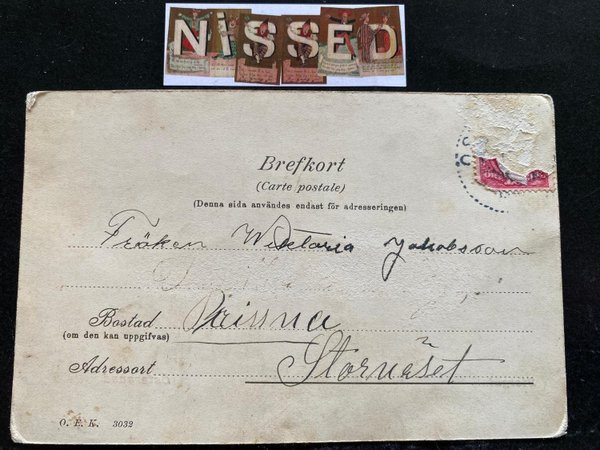 NiSSED
Brefkort
(Carte postale)
(Denna sida användes endast för adresseringen)
Fröken Wiktoria Jakobsson
Bostad
(om den kan uppgifvas)
Adressort Stornäset
O. E. K. 3032